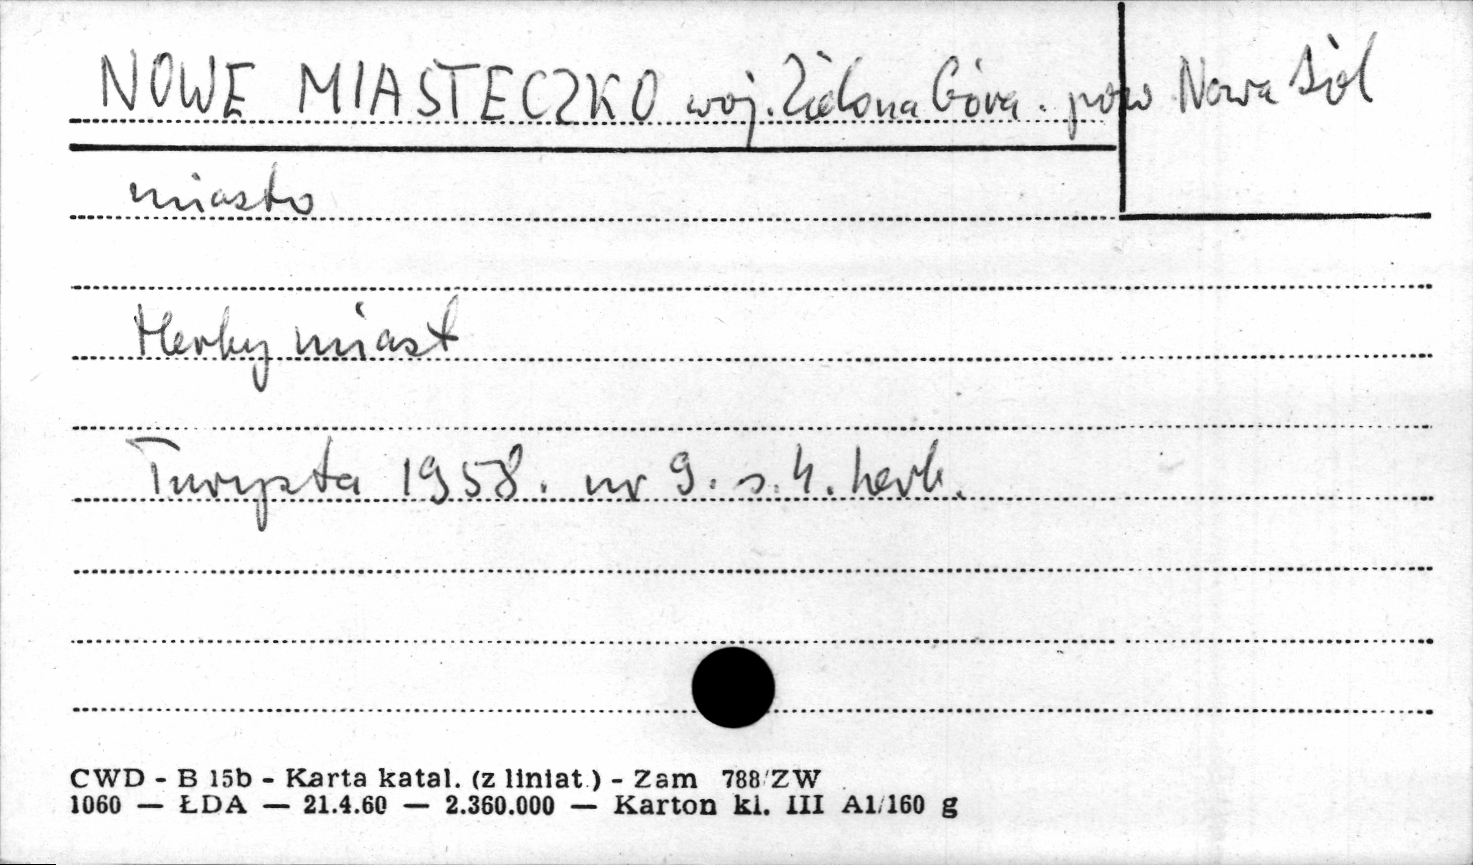 NOWE MIASTECZKO woj. Zielona Góra. pow Nowa Sól
miasto
Herby miast
Turysta 1958. nr 9. s. 4. herb.
CWD - B 15b - Karta katal. (z liniat.) - Zam 788/ZW
1060 — ŁDA — 21.4.60 — 2.360.000 — Karton kl. III A1/160 g